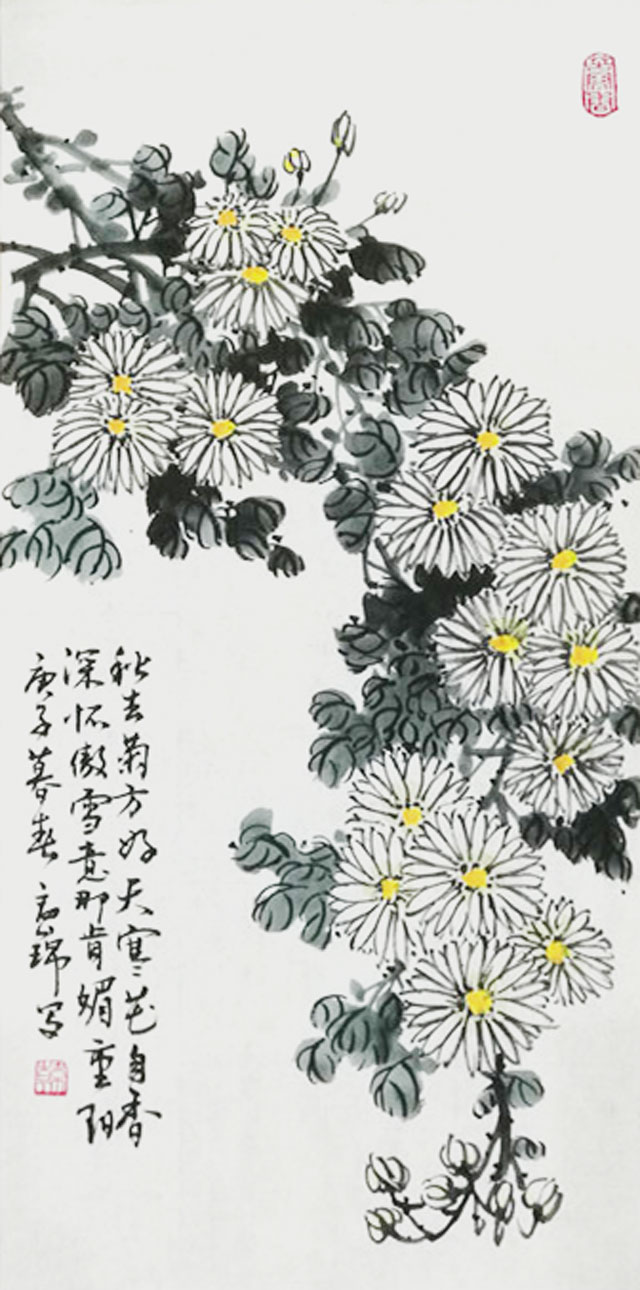 秋去菊方好天寒花自香
深怀傲雪意那肯媚重阳
庚子暮春 瑞写